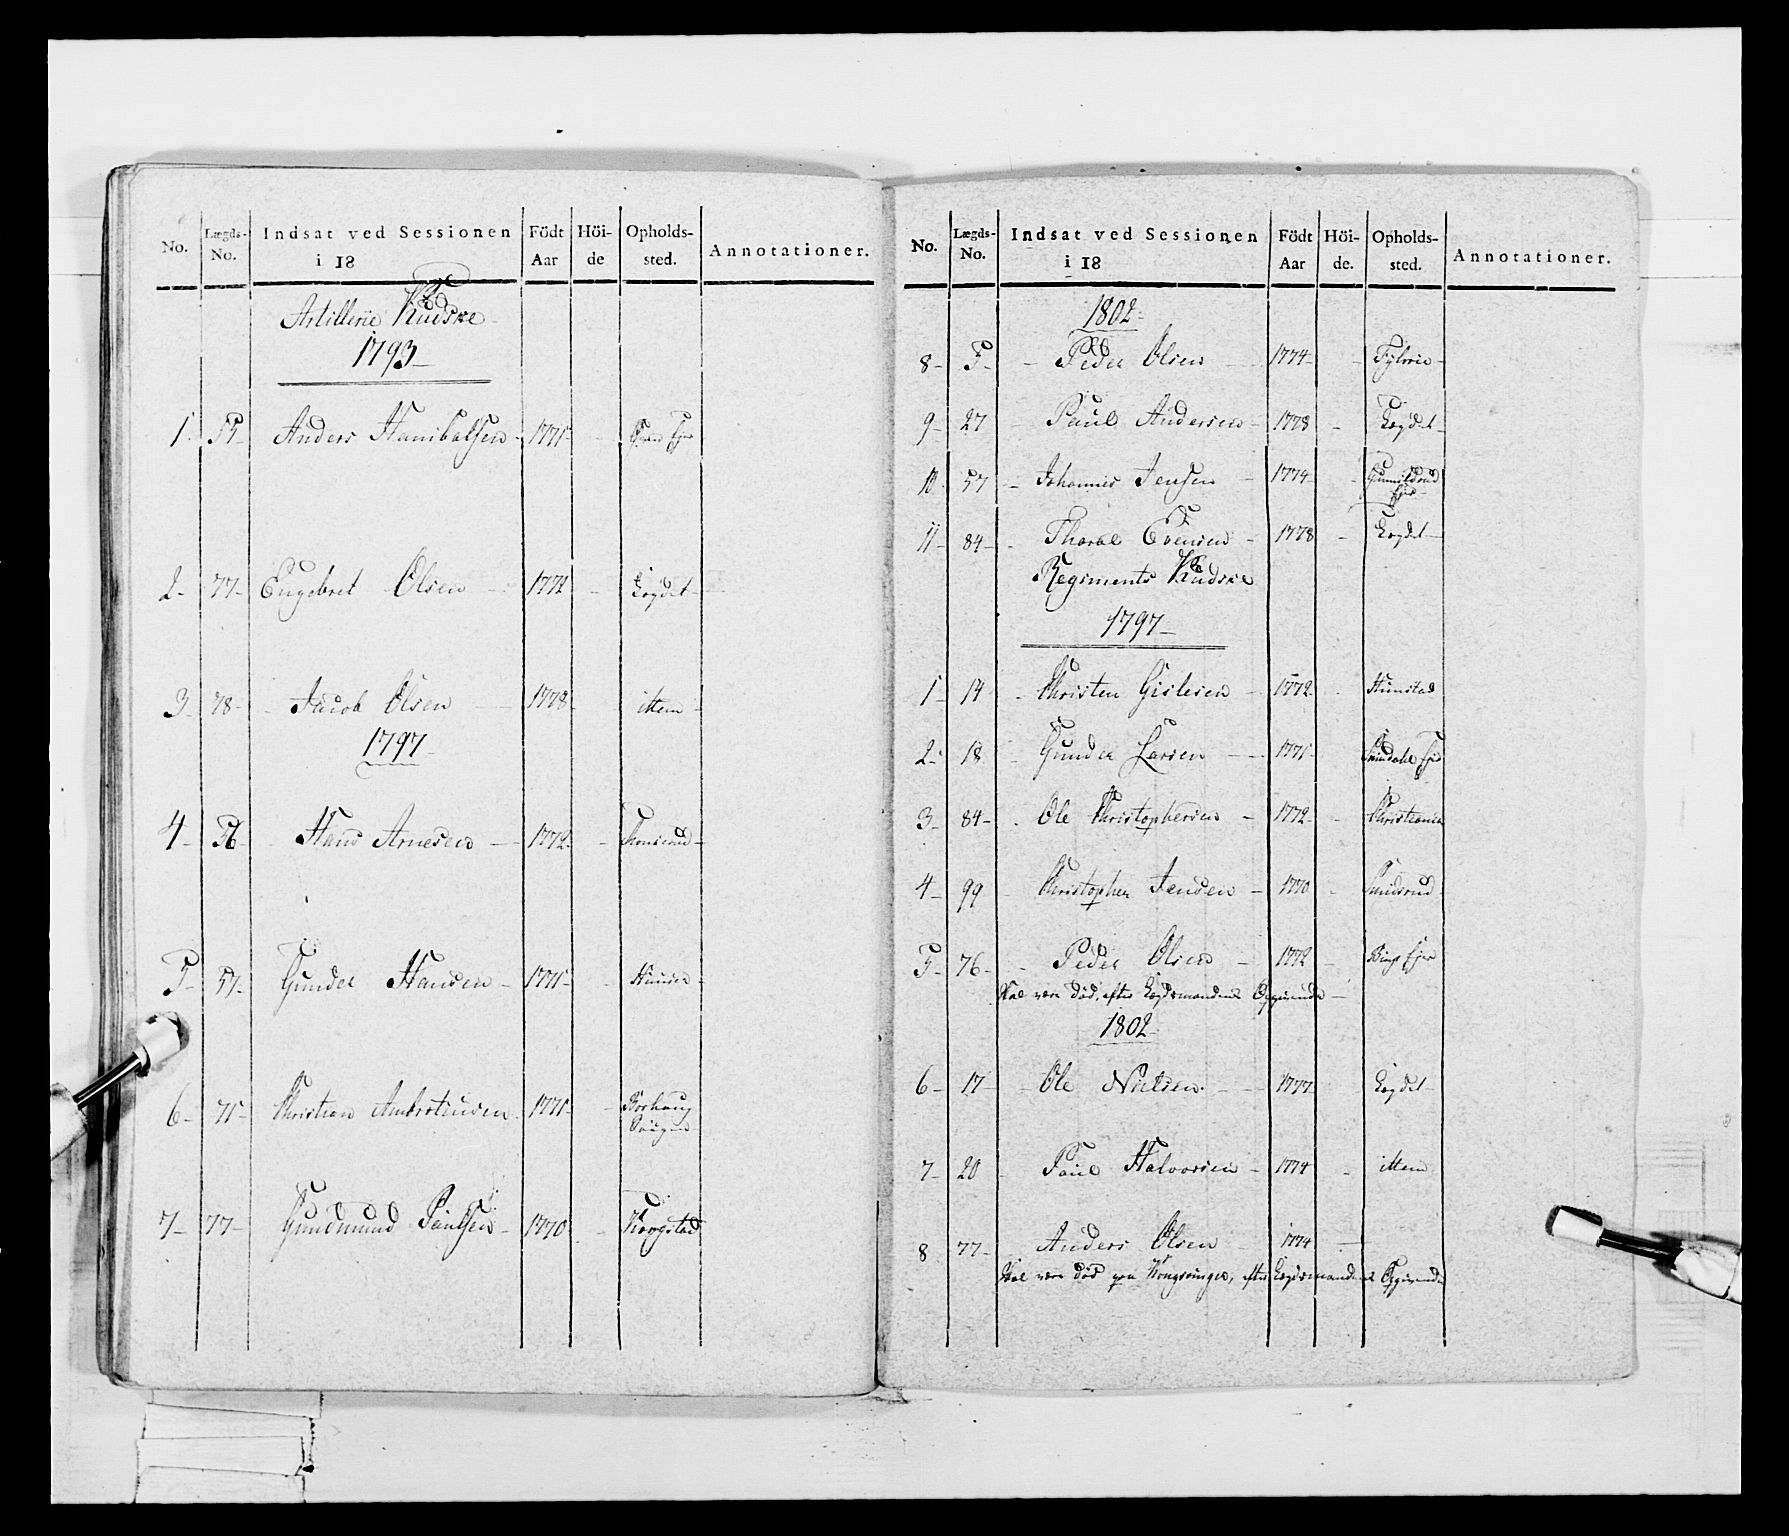 No. Lægds-No. Indsat ved Sessionen i 18 Födt Aar Höi-de Opholds-sted. Annotationer.
Artillerie Kudske
1793
1. 55 Anders Hanibalsen 1771
2 77 Engebret Olsen 1772 Lægdet
3 78 Jacob Olsen 1773 item
1797
4 56 Hans Arnesen 1772
5 57 Gunder Hansen 1771
6 71 Christian Ambrotsensen 1771
7 77 Gundmund Paulsen 1770 Krogstad
No. Lægds-No. Indsat ved Sessionen i 18 Födt Aar Höi-de. Opholds-sted. Annotationer.
1802
8 5 Peder Olsen 1774
9 27 Paul Andersen 1778 Lægdet
10 57 Johannes Jensen 1774
11 84 Thoral Evensen 1778 Lægdet
Regiments Kudske
1797
1 14 Christen Gislesen 1772
2 18 Gunder Larsen 1771
3 84 Ole Christophersen 1772 Christiania
4 99 Christopher Jensen 1770
5 76 Peder Olsen 1772
Skal være död, efter Lægdsmandens Opgivende
1802
6 17 Ole Nielsen 1777 Lægdet
7 20 Paul Halvorsen 1774 item
8 77 Anders Olsen 1774
Skal være död paa Kongsvinger, efter Lægdsmandens Opgivende